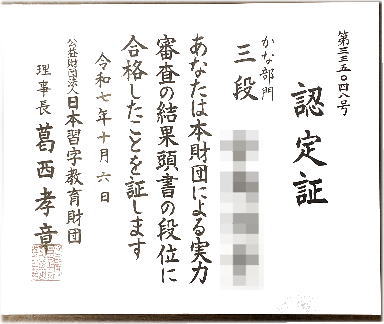 第三三五〇四八号
認定証
かな部門
三段
あなたは本財団による実力
審査の結果頭書の段位に
合格したことを証します
令和七年十月六日
公益財団法人日本習字教育財団
理事長 葛西孝章